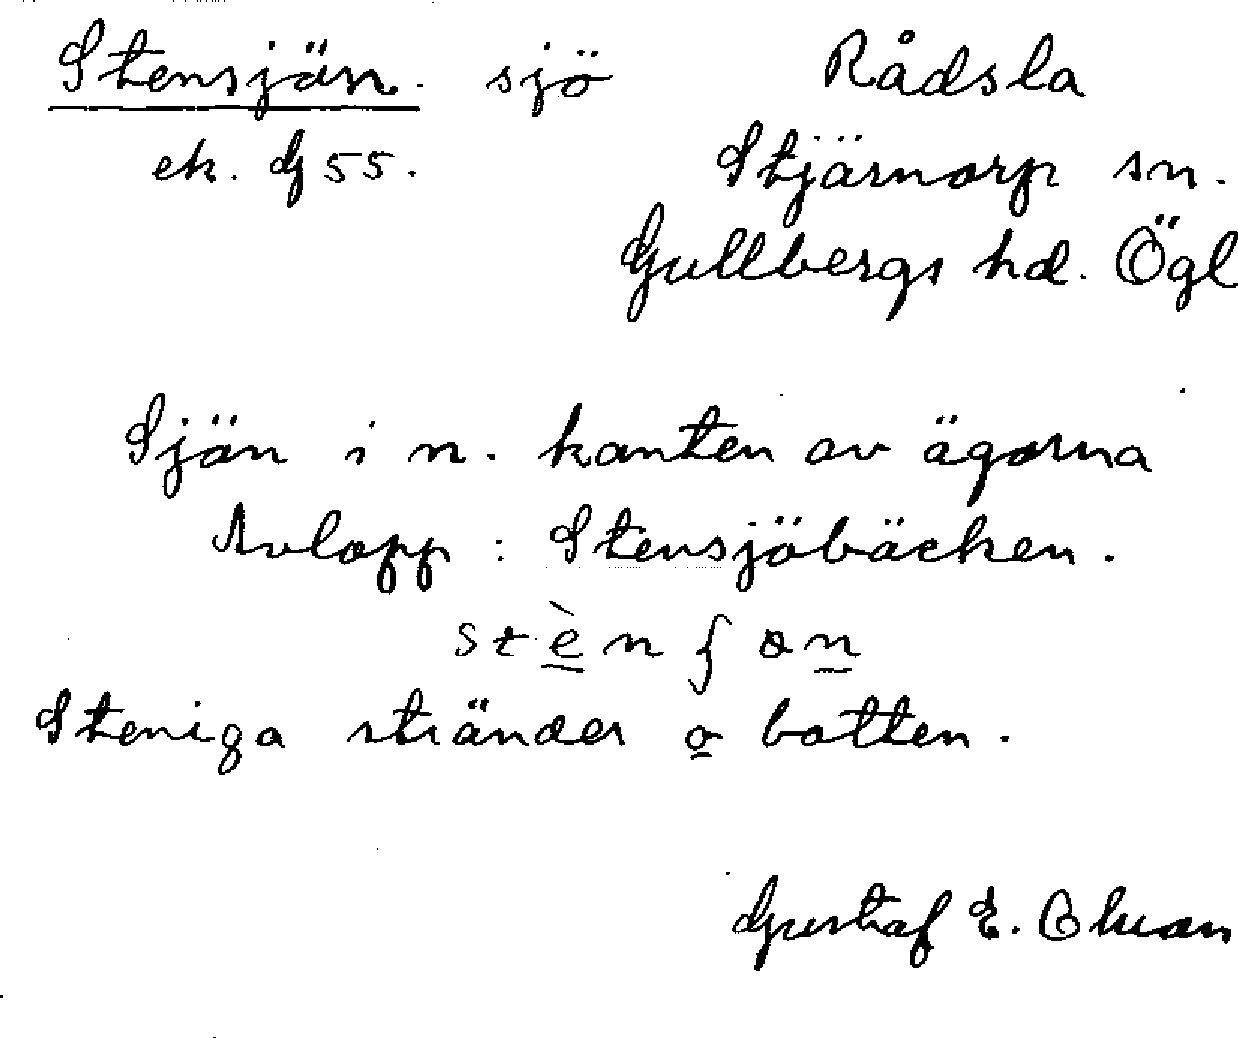 Stensjön. sjö Rådsla
ek. G 55. Stjärnorp sn.
Gullbergs hd. Ögl
Sjön i n. kanten av ägorna
Avlopp: Stensjöbäcken.
stènʃɷn
Steniga stränder o botten.
Gustaf E.